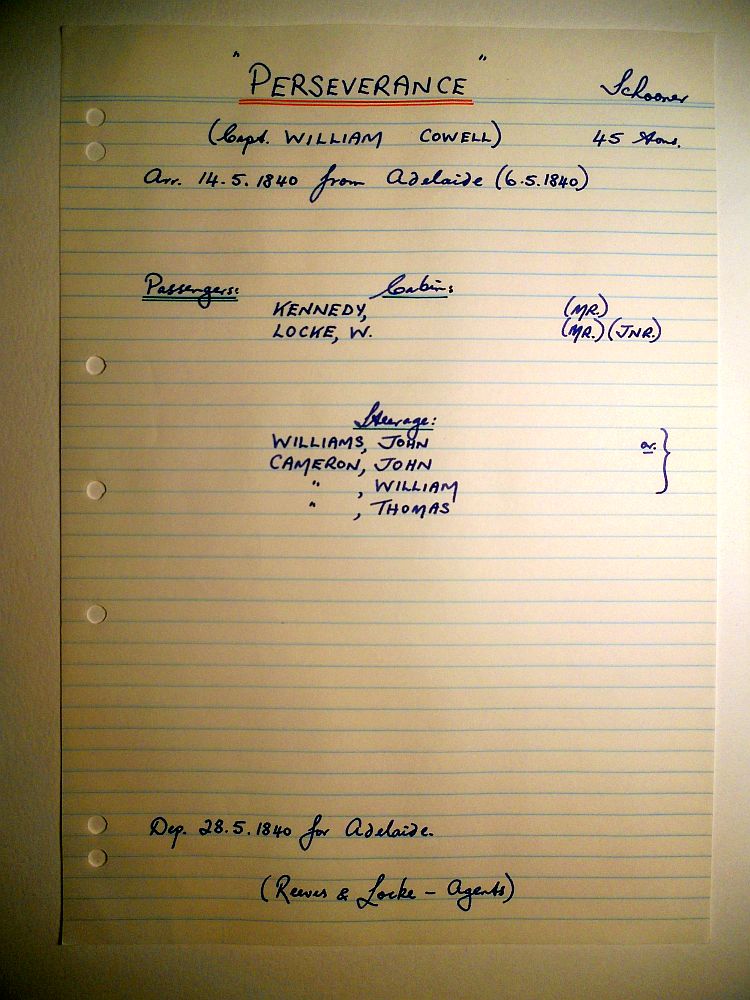 "PERSEVERANCE" Schooner
(Capt. WILLIAM COWELL) 45 tons.
Arr. 14.5.1840 from Adelaide (6.5.1840)
Passengers: Cabin:
KENNEDY, (MR.)
LOCKE, W. (MR.) (JNR.)
Steerage:
WILLIAMS, JOHN
CAMERON, JOHN
" , WILLIAM
" , THOMAS
Dep. 28.5.1840 for Adelaide.
(Reeves & Locke - Agents)